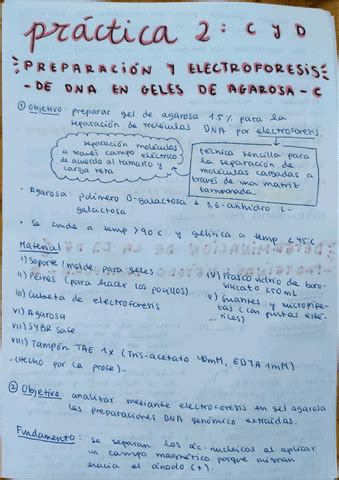 práctica 2: C y D
PREPARACIÓN Y ELECTROFORESIS
- DE DNA EN GELES DE AGAROSA - C
① Objetivo: preparar gel de agarosa 1.5% para la
separación de moléculas DNA por electroforesis.
separación moléculas
a través campo eléctrico
de acuerdo al tamaño y
carga neta
técnica sencilla para
la separación de
moléculas cargadas a
través de una matriz
tamponada.
- Agarosa: polímero D-galactosa + 3,6-anhidro L-
galactosa
- Se funde a temp >90°C y gelifica a temp <45°C
Material
I) Soporte/molde para geles
II) Peines (para hacer los pocillos)
III) Cubeta de electroforesis
IV) Frasco vidrio de boro-
silicato 250ml
V) Guantes y micropipe-
tas (con puntas esté-
riles)
VI) Agarosa
VII) SYBR safe
VIII) Tampón TAE 1x (Tris-acetato 40mM, EDTA 1mM)
- (Hecho por la profe) -
② Objetivo: analizar mediante electroforesis en gel agarosa
las preparaciones DNA genómico extraídas.
Fundamento: se separan los ác. nucleicos al aplicar
un campo magnético porque migran
hacia el ánodo (+).